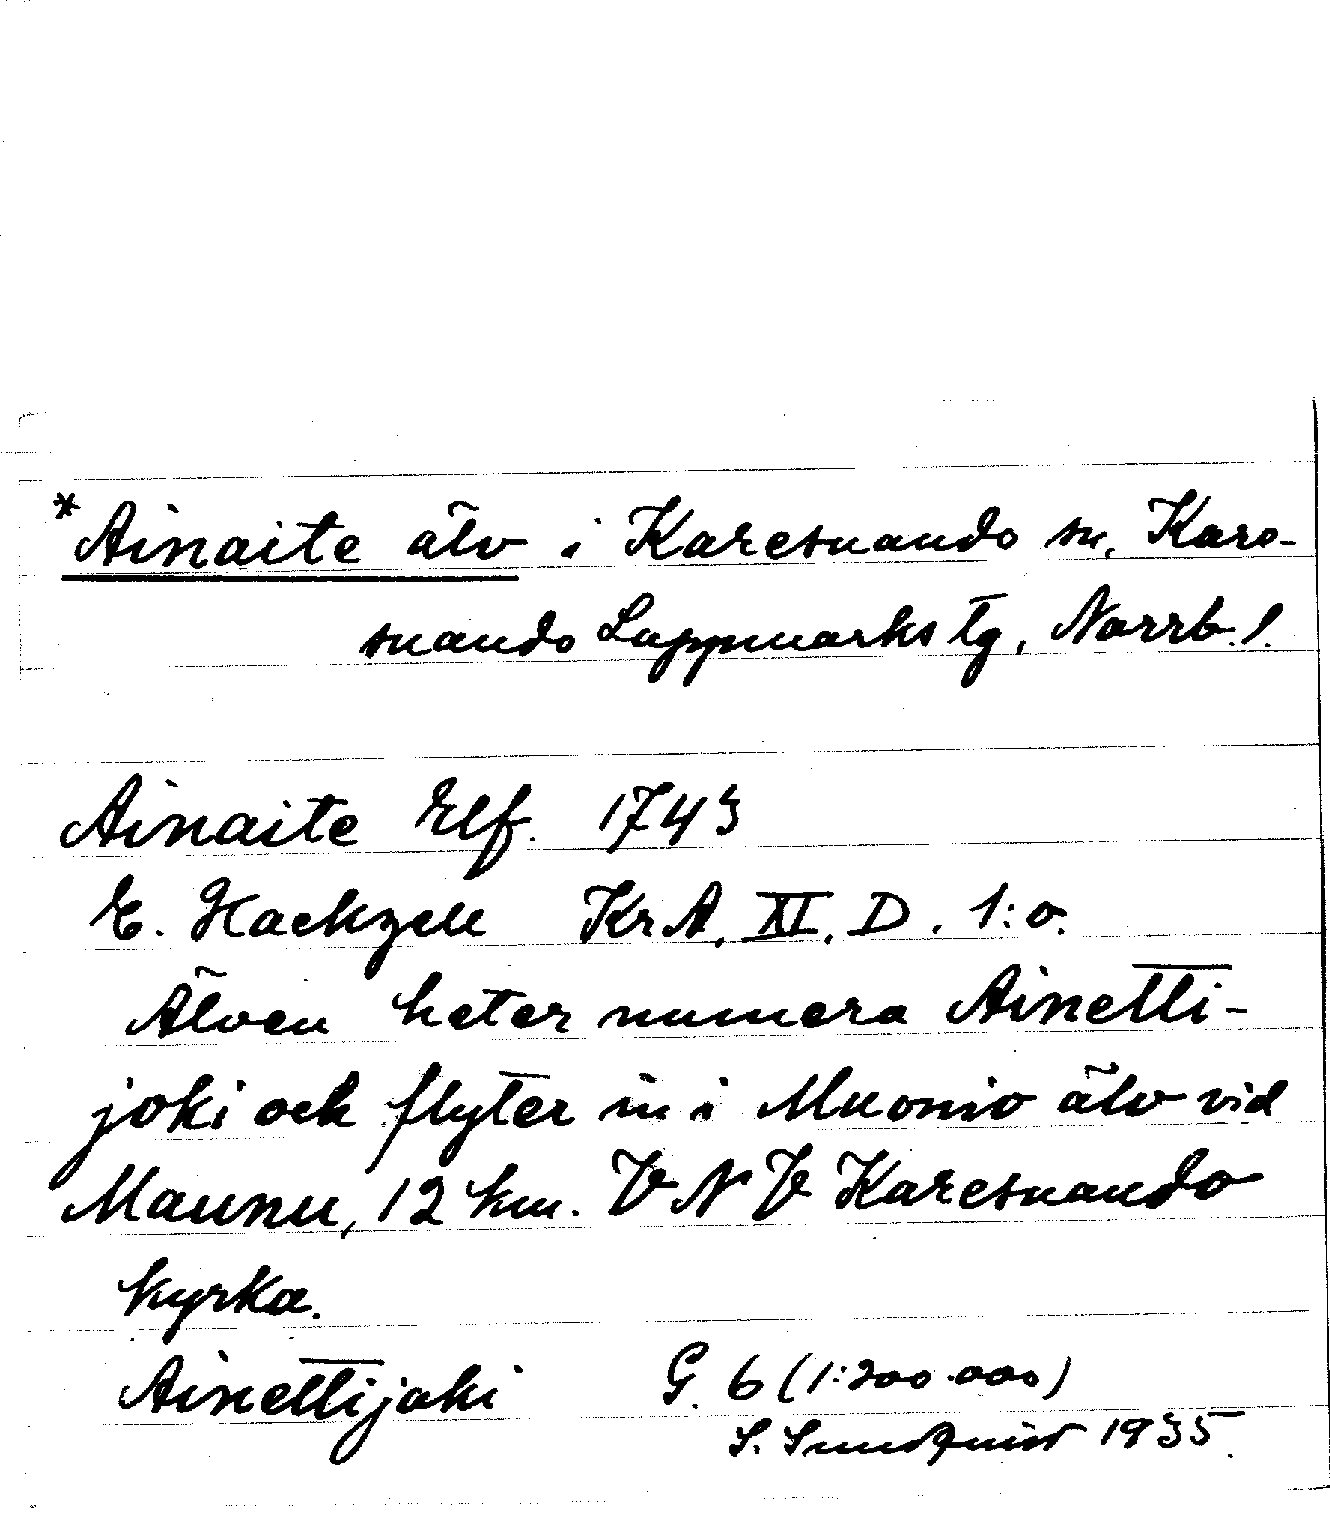 *Ainaite älv i Karesuando sn, Kare-
suando Lappmarks tg, Norrb. l.
Ainaite Elf. 1743
E. Hackzell KrA. XI. D. 1:o.
Älven heter numera Ainetti-
joki och flyter in i Muonio älv vid
Maunu, 12 km. VNV Karesuando
kyrka.
Ainettijoki G. 6 (1:200.000)
S. Sundquist 1935.